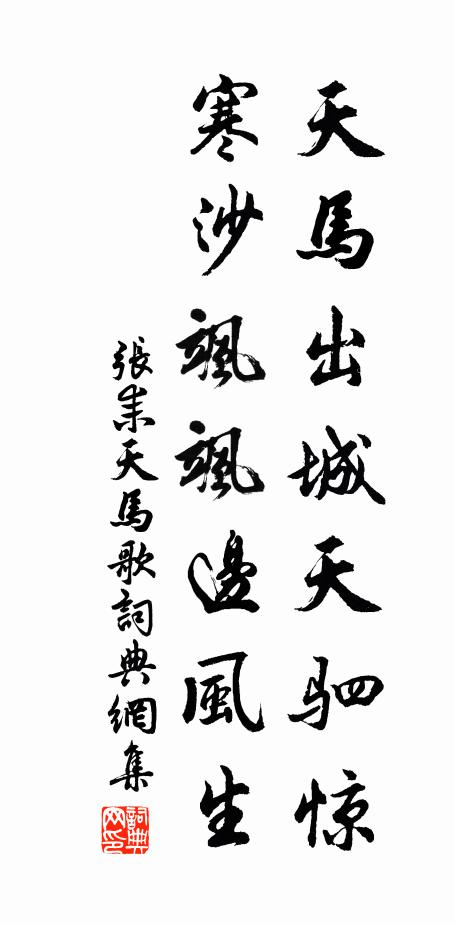 天馬出城天驷惊
寒沙颯颯邊風生
張耒天馬歌詞典網集
詞典网印